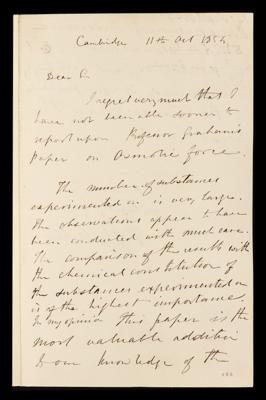 Cambridge 11th Oct 1854
Dear Sir
I regret very much that I
have not been able sooner to
report upon Professor Graham's
Paper on Osmotic force.
The number of substances
experimented on is very large.
the observations appear to have
been conducted with much care.
The comparison of the results with
the chemical constitution of
the substances experimented on
is of the highest importance.
In my opinion this paper is the
most valuable addition
to our knowledge of the